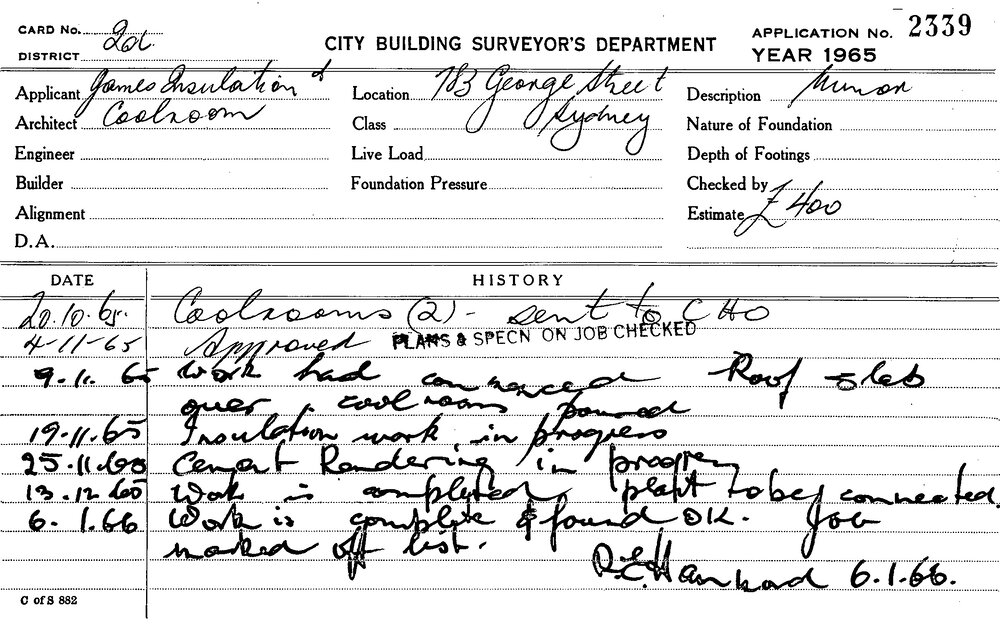 CARD No. 2d
DISTRICT
CITY BUILDING SURVEYOR'S DEPARTMENT
APPLICATION No. 2339
YEAR 1965
Applicant James Insulation &
Architect Coolroom
Engineer
Builder
Alignment
D.A.
Location 783 George Street
Class Sydney
Live Load
Foundation Pressure
Description Minor
Nature of Foundation
Depth of Footings
Checked by
Estimate £400
DATE HISTORY
20.10.65. Coolrooms (2) - sent to CHO
4-11-65 Approved PLANS & SPECN ON JOB CHECKED
9.11.65 Work had commenced Roof slab
over coolrooms poured
19.11.65 Insulation work in progress
25.11.65 Cement Rendering in progress
13.12.65 Work is completed plant to be connected.
6.1.66 Work is complete & found OK. Job
marked off list.
6.1.66.
C of S 882